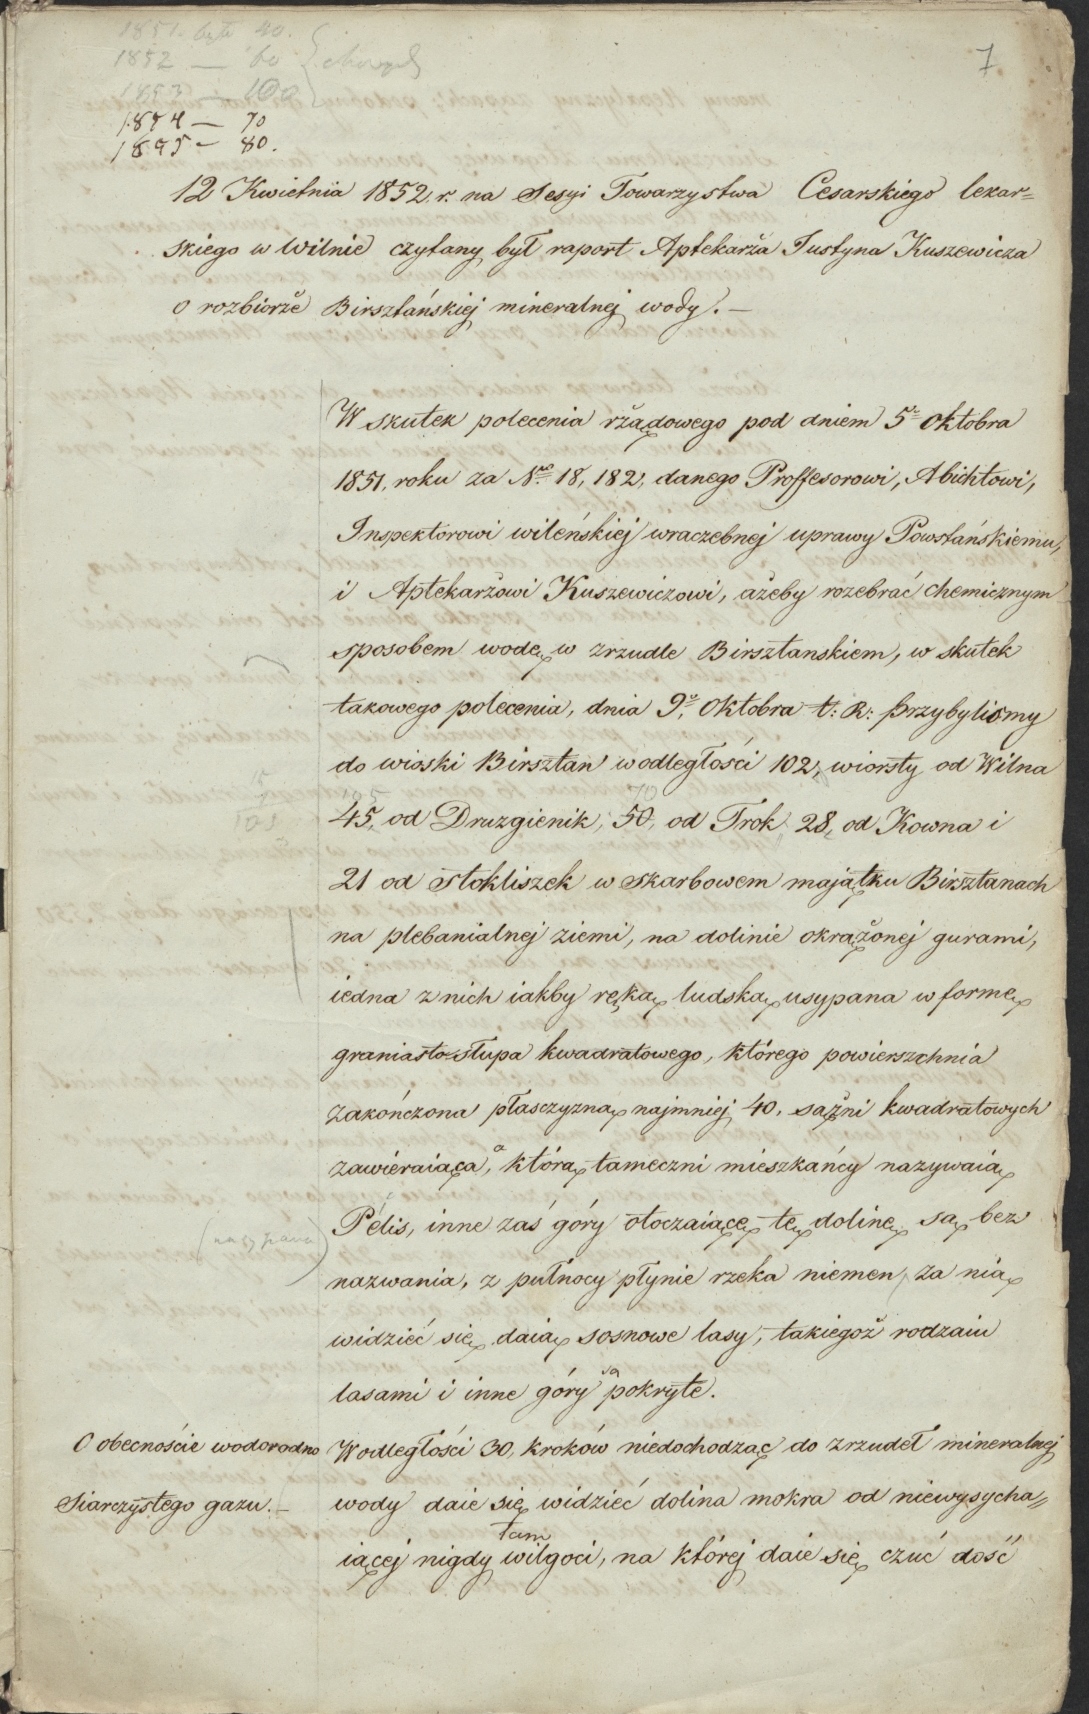 1851. było 40.
1852 — 60
1853 — 100
1854 — 70
1855 — 80.
7
12 Kwietnia 1852. r. na Sesyi Towarzystwa Cesarskiego lekar=
skiego w Wilnie czytany był raport Aptekarża Justyna Kuszewicza
o rozbiorże Birsztańskiej mineralnej wody. —
W skutek polecenia rżądowego pod dniem 5º Oktobra
1851, roku za Nrº 18,182, danego Proffesorowi, Abichtowi,
Inspektorowi wileńskiej wraczebnej uprawy Powstańskiemu,
i Aptekarżowi Kuszewiczowi, ażeby rozebrać chemicznym
sposobem wodę w zrzudle Birsztanskiem, w skutek
takowego polecenia, dnia 9º Oktobra t: R: przybyliśmy
do wioski Birsztan w odległości 102, wiorsty od Wilna
45, od Druzgienik, 50, od Trok 28, od Kowna i
21 od Stokliszek w skarbowem majątku Birsztanach
na plebanialnej ziemi, na dolinie okrążonej gurami,
iedna z nich iakby ręką ludską usypana w formę
graniasto-słupa kwadratowego, którego powierszchnia
zakończona płasczyzną najmniej 40. sążni kwadratowych
zawieraiąca, którą tameczni mieszkańcy nazywaią
Pélis, inne zaś góry otoczaiącę tę dolinę są bez
nazwania, z pułnocy płynie rzeka niemen, za nią
widzieć się daią sosnowe lasy, takiegoż rodzaiu
lasami i inne góry są pokryte.
O obecnoście wodorodno
Siarczystego gazu. —
W odległości 30, kroków niedochodząc do zrzudeł mineralnej
wody daie się widzieć dolina mokra od niewysycha=
iącej nigdy tam wilgoci, na której daie się czuć dość